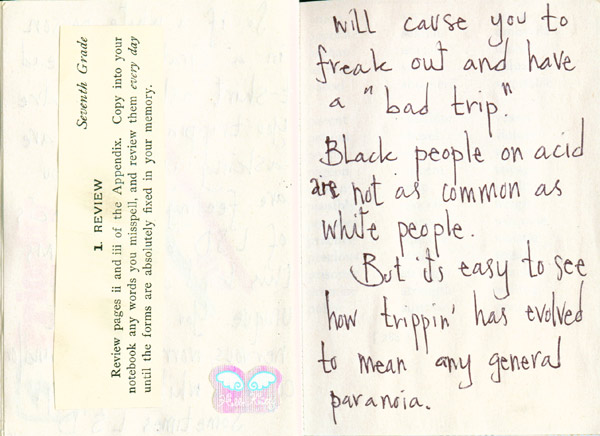 Seventh Grade
1. REVIEW
Review pages ii and iii of the Appendix. Copy into your
notebook any words you misspell, and review them every day
until the forms are absolutely fixed in your memory.
will cause you to
freak out and have
a "bad trip."
Black people on acid
are not as common as
white people.
But it's easy to see
how trippin' has evolved
to mean any general
paranoia.